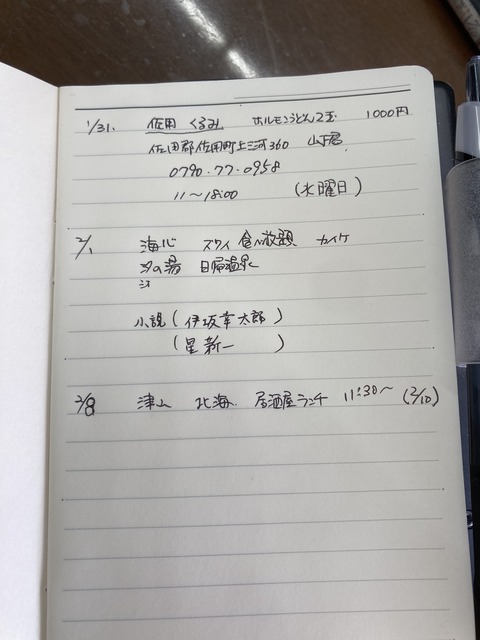 1/31. 佐用 くるみ ホルモンうどん2玉 1000円
佐用郡佐用町上三河360 山下君
0790.77.0958
11〜18:00 (水曜日)
2/1 海心 ズワイ食べ放題 カイケ
汐の湯 日帰温泉
小説(伊坂幸太郎)
(星新一)
2/8 津山 北海 居酒屋ランチ 11:30〜 (2/10)